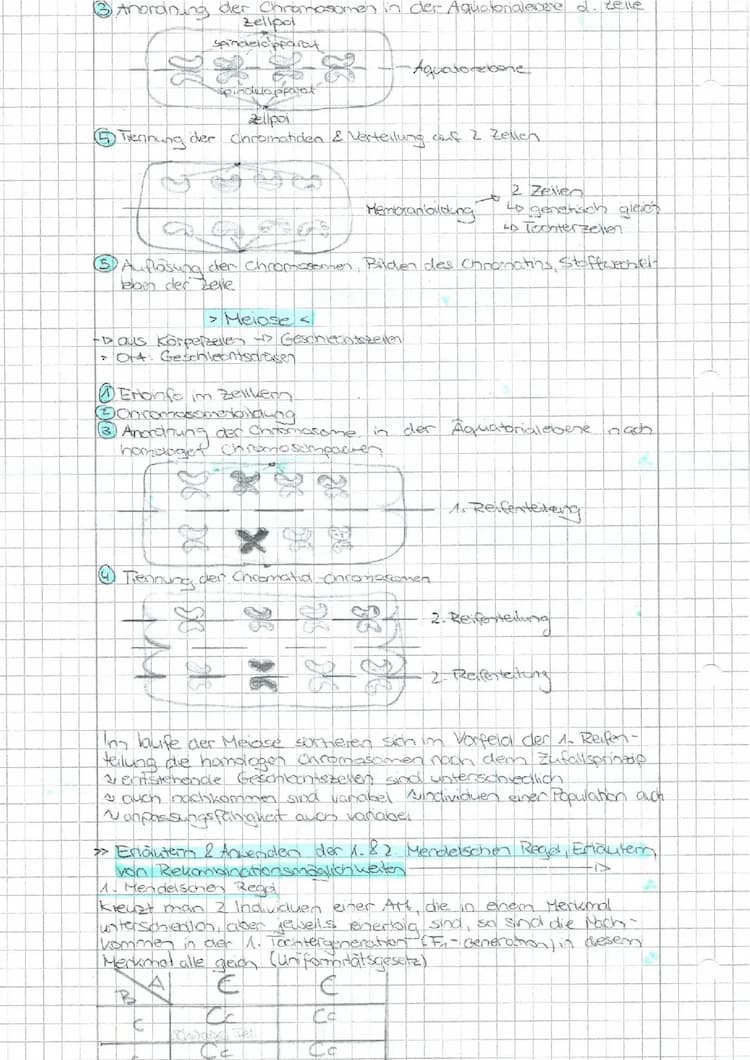 ③ Anordnung der Chromosomen in der Äquatorialebene d. Zelle
Zellpol
Spindelapparat
Äquatorebene
Spindelapparat
Zellpol
⑤ Trennung der Chromatiden & Verteilung auf 2 Zellen
Membranbildung
2 Zellen
↳ genetisch gleich
↳ Tochterzellen
⑤ Auflösung der Chromosomen, Bilden des Chromatins, Stoffwechsel-
leben der Zelle
> Meiose <
→ aus Körperzellen → Geschlechtszellen
> Ort: Geschlechtsdrüsen
① Erbinfo im Zellkern
② Chromosomenbildung
③ Anordnung der Chromosome in der Äquatorialebene nach
homologen Chromosompaaren
1. Reifenteilung
④ Trennung der Chromatid-Chromosomen
2. Reifenteilung
2. Reifenteilung
Im laufe der Meiose sortieren sich im Vorfeld der 1. Reifen-
teilung die homologen Chromosomen nach dem Zufallsprinzip
~ entstehende Geschlechtszellen sind unterschiedlich
~ auch nachkommen sind variabel ~ Individuen einer Population auch
~ anpassungsfähigkeit auch variabel
>> Erläutern & Anwenden der 1. & 2 Mendelschen Regel, Erläutern
von Rekombinationsmöglichkeiten
1. Mendelschen Regel
Kreuzt man 2 Individuen einer Art, die in einem Merkmal
unterschiedlich, aber jeweils reinerbig sind, so sind die Nach-
kommen in der 1. Tochtergeneration (F₁-Generation) in diesem
Merkmal alle gleich (Uniformitätsgesetz)
A C C
B
c Cc Cc
Cc Cc